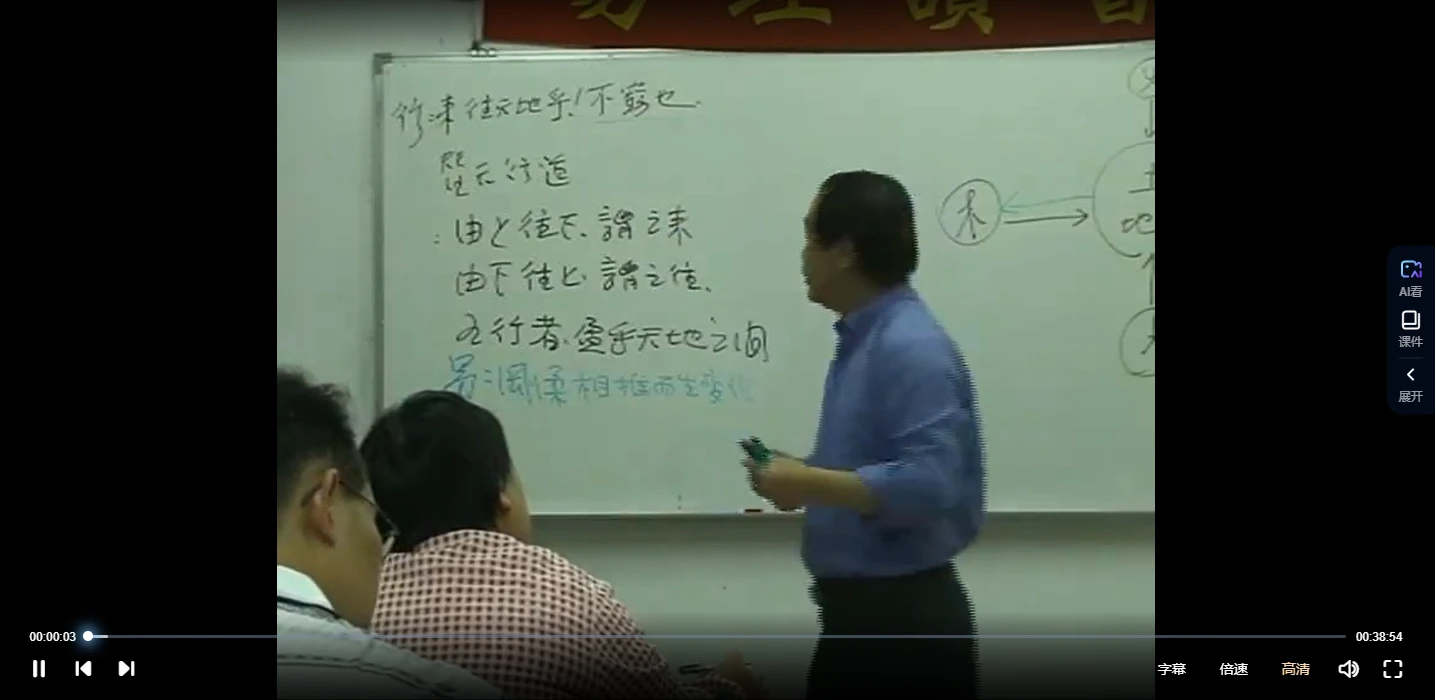 行來往天地乎！不窮也.
天行道
：由上往下、謂之來
由下往上、謂之往、
五行者、盈乎天地之间
易：剛柔相推而生變化
木
土
地
AI看
课件
展开
00:00:03
00:38:54
字幕
倍速
高清